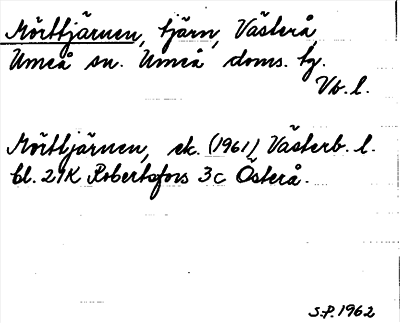 Mörttjärnen, tjärn, Västerå
Umeå sn. Umeå doms. tg.
Vb. l.
Mörttjärnen, ek. (1961) Västerb. l.
bl. 21K Robertsfors 3c Österå.
S.P. 1962